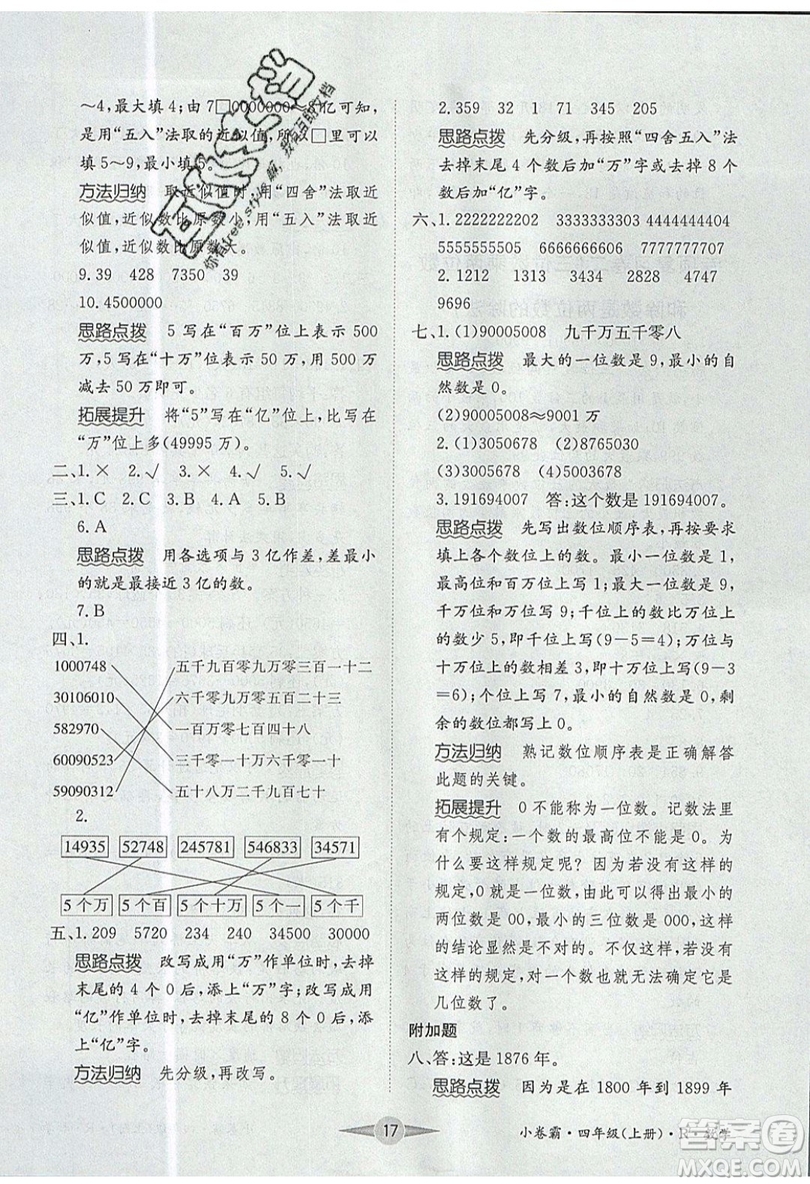 ~4,最大填4;由7□0000000~8亿可知,
是用“五入”法取的近似值,所以□里可以
填5~9,最小填5。
方法归纳 取近似值时,用“四舍”法取近
似值,近似数比原数小,用“五入”法取近
似值,近似数比原数大。
9.39 428 7350 39
10.4500000
思路点拨 5写在“百万”位上表示500
万,5写在“十万”位上表示50万,用500
万减去50万即可。
拓展提升 将“5”写在“亿”位上,比写在
“万”位上多(49995万)。
二、1.× 2.√ 3.× 4.√ 5.√
三、1.C 2.C 3.B 4.A 5.B
6.A
思路点拨 用各选项与3亿作差,差最小
的就是最接近3亿的数。
7.B
四、1.
1000748 五千九百零九万零三百一十二
30106010 六千零九万零五百二十三
582970 一百万零七百四十八
60090523 三千零一十万六千零一十
59090312 五十八万二千九百七十
2.
14935 52748 245781 546833 34571
5个万 5个百 5个十万 5个一 5个千
五、1.209 5720 234 240 34500 30000
思路点拨 改写成用“万”作单位时,去掉
末尾的4个0后,添上“万”字;改写成用
“亿”作单位时,去掉末尾的8个0后,添
上“亿”字。
方法归纳 先分级,再改写。
2.359 32 1 71 345 205
思路点拨 先分级,再按照“四舍五入”法
去掉末尾4个数后加“万”字或去掉8个
数后加“亿”字。
六、1.2222222202 3333333303 4444444404
5555555505 6666666606 7777777707
2.3434 4141 1357 2828 4747
9696
七、1.(1)90005008 九千万五千零八
思路点拨 最大的一位数是9,最小的自
然数是0。
(2)90005008≈9001万
2.(1)3050678 (2)8765030
(3)3005678 (4)3056078
3.191694007 答:这个数是191694007。
思路点拨 先写出数位顺序表,再按要求
填上各个数位上的数。最小的一位数是1,
最高位和百万位上写1;最大的一位数是9,
千万位和万位写9;千位上的数比万位上
的数少5,即千位上写(9-5=4);万位与
十万位上的数相差3,即十万位上写(9-3
=6);个位上写7,最小的自然数是0,剩
余的数位都写上0。
方法归纳 熟记数位顺序表是正确解答
此题的关键。
拓展提升 0不能称为一位数。记数法里
有个规定:一个数的最高位不能是0。为
什么要这样规定呢?因为若没有这样的
规定,就无法确定一个数是几位数,最小的
两位数是00,最小的三位数是000,这样
的结论显然是不对的。由此可见,如果没
有这样的规定,数字也就无法确定它是
几位数了。
附加题
八、答:这是1876年。
思路点拨 因为是在1800年到1899年
17
小卷霸·四年级(上册)·R·数学
答案圈
MXQE.COM